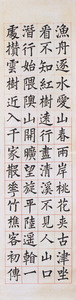 漁舟逐水愛山春兩岸桃花夾古津坐
看不知紅樹遠行盡清溪不見人山口
潛行始隈隩山開曠望旋平陸遙看一
處攢雲樹近入千家散花竹樵客初傳